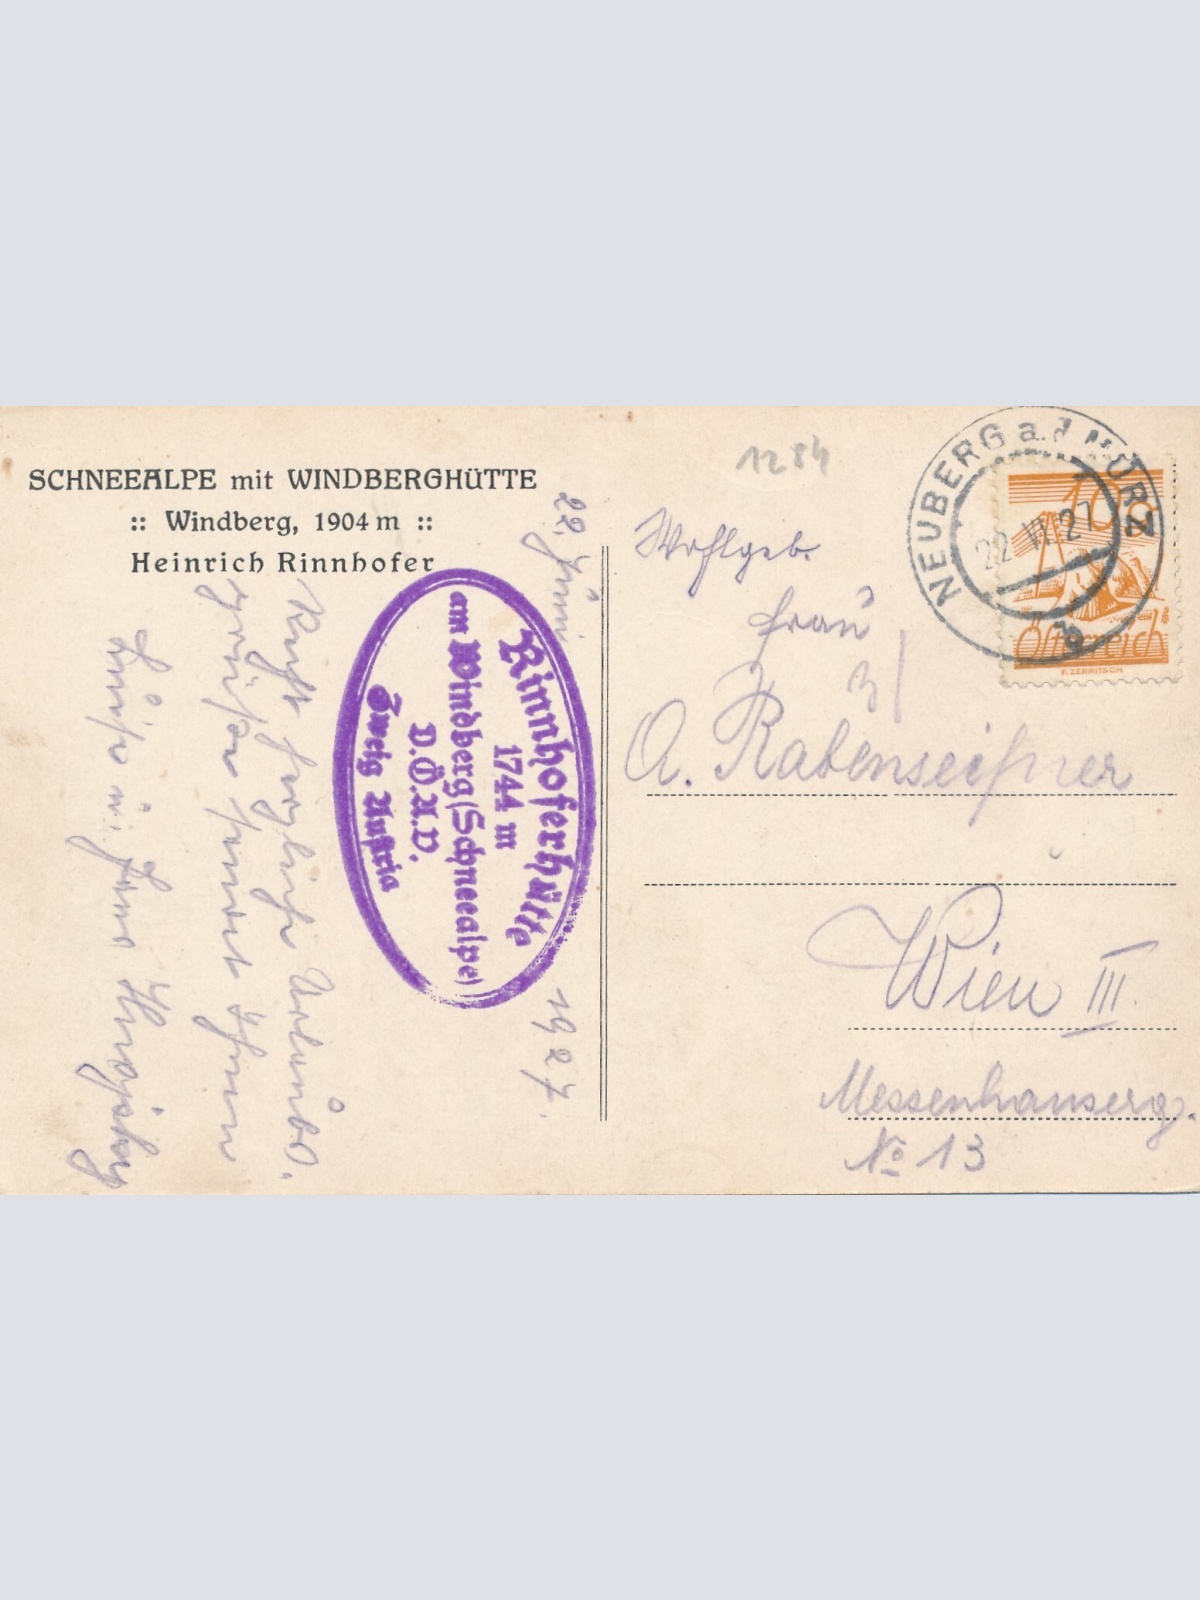 SCHNEEALPE mit WINDBERGHÜTTE
:: Windberg, 1904 m ::
Heinrich Rinnhofer
22. Juni 1927.
Recht herzliche
Grüße sendet Ihnen
Luise u.
Rinnhoferhütte
1744 m
am Windberg (Schneealpe)
D.Ö.A.V.
Zweig Austria
1284
NEUBERG a.d. MÜRZ
22. VI. 27
b
10g
Österreich
F. ZERRITSCH
Wohlgeb.
Frau
A. Rabenseifner
Wien III.
Messenhauserg.
No 13